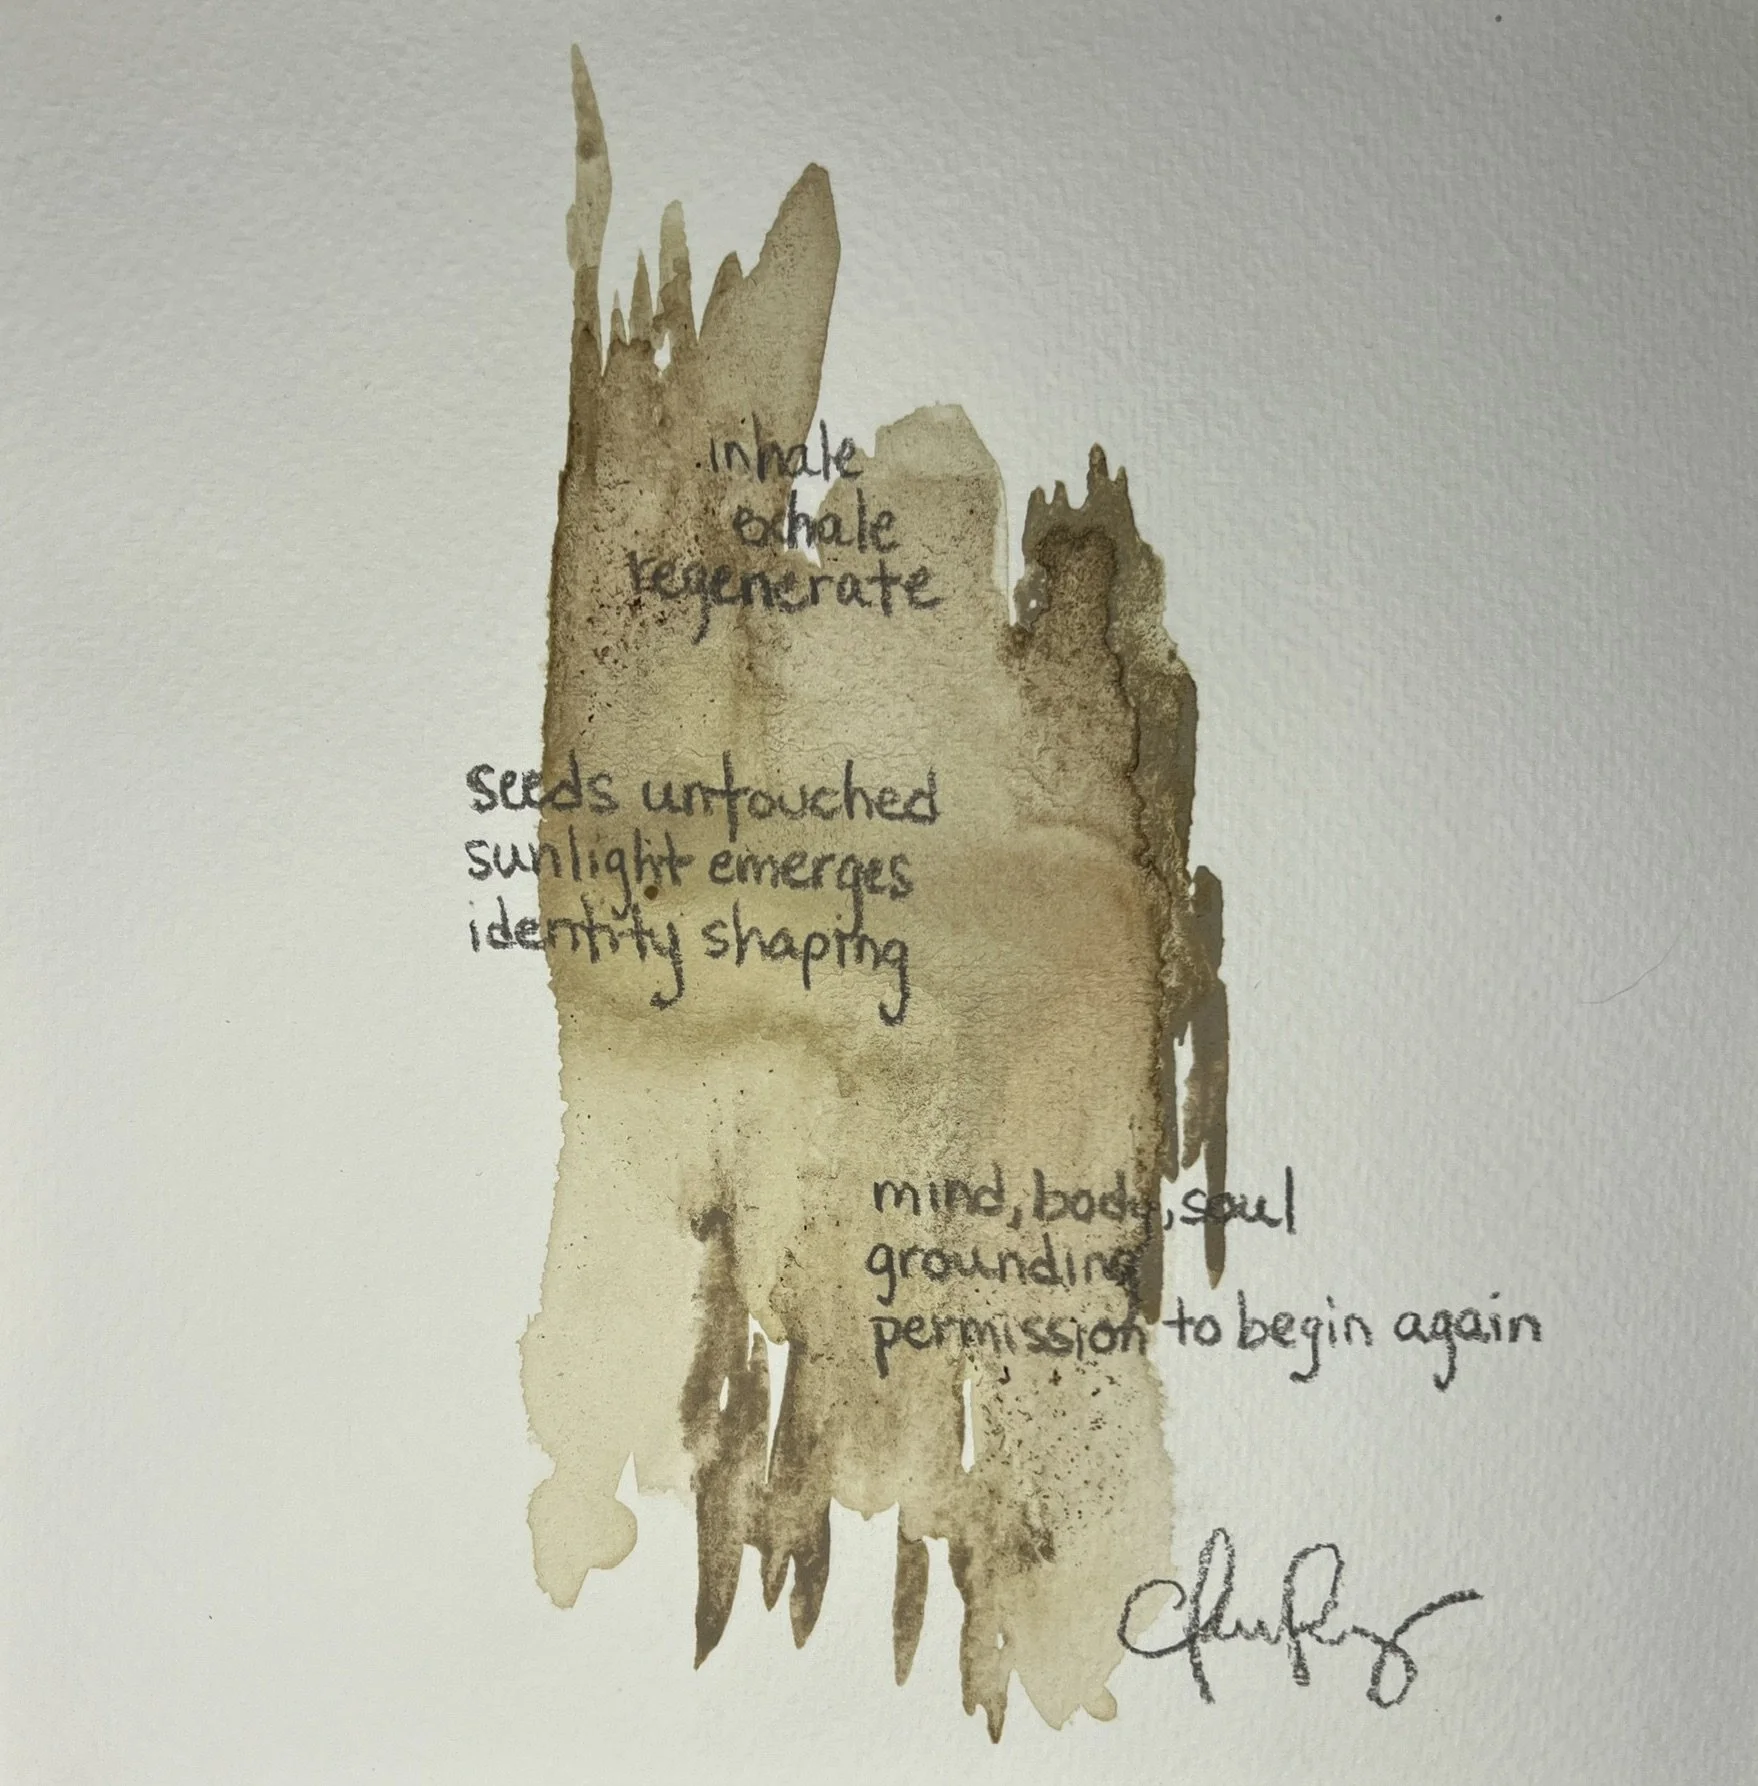 inhale
exhale
regenerate
seeds untouched
sunlight emerges
identity shaping
mind, body, soul
grounding
permission to begin again